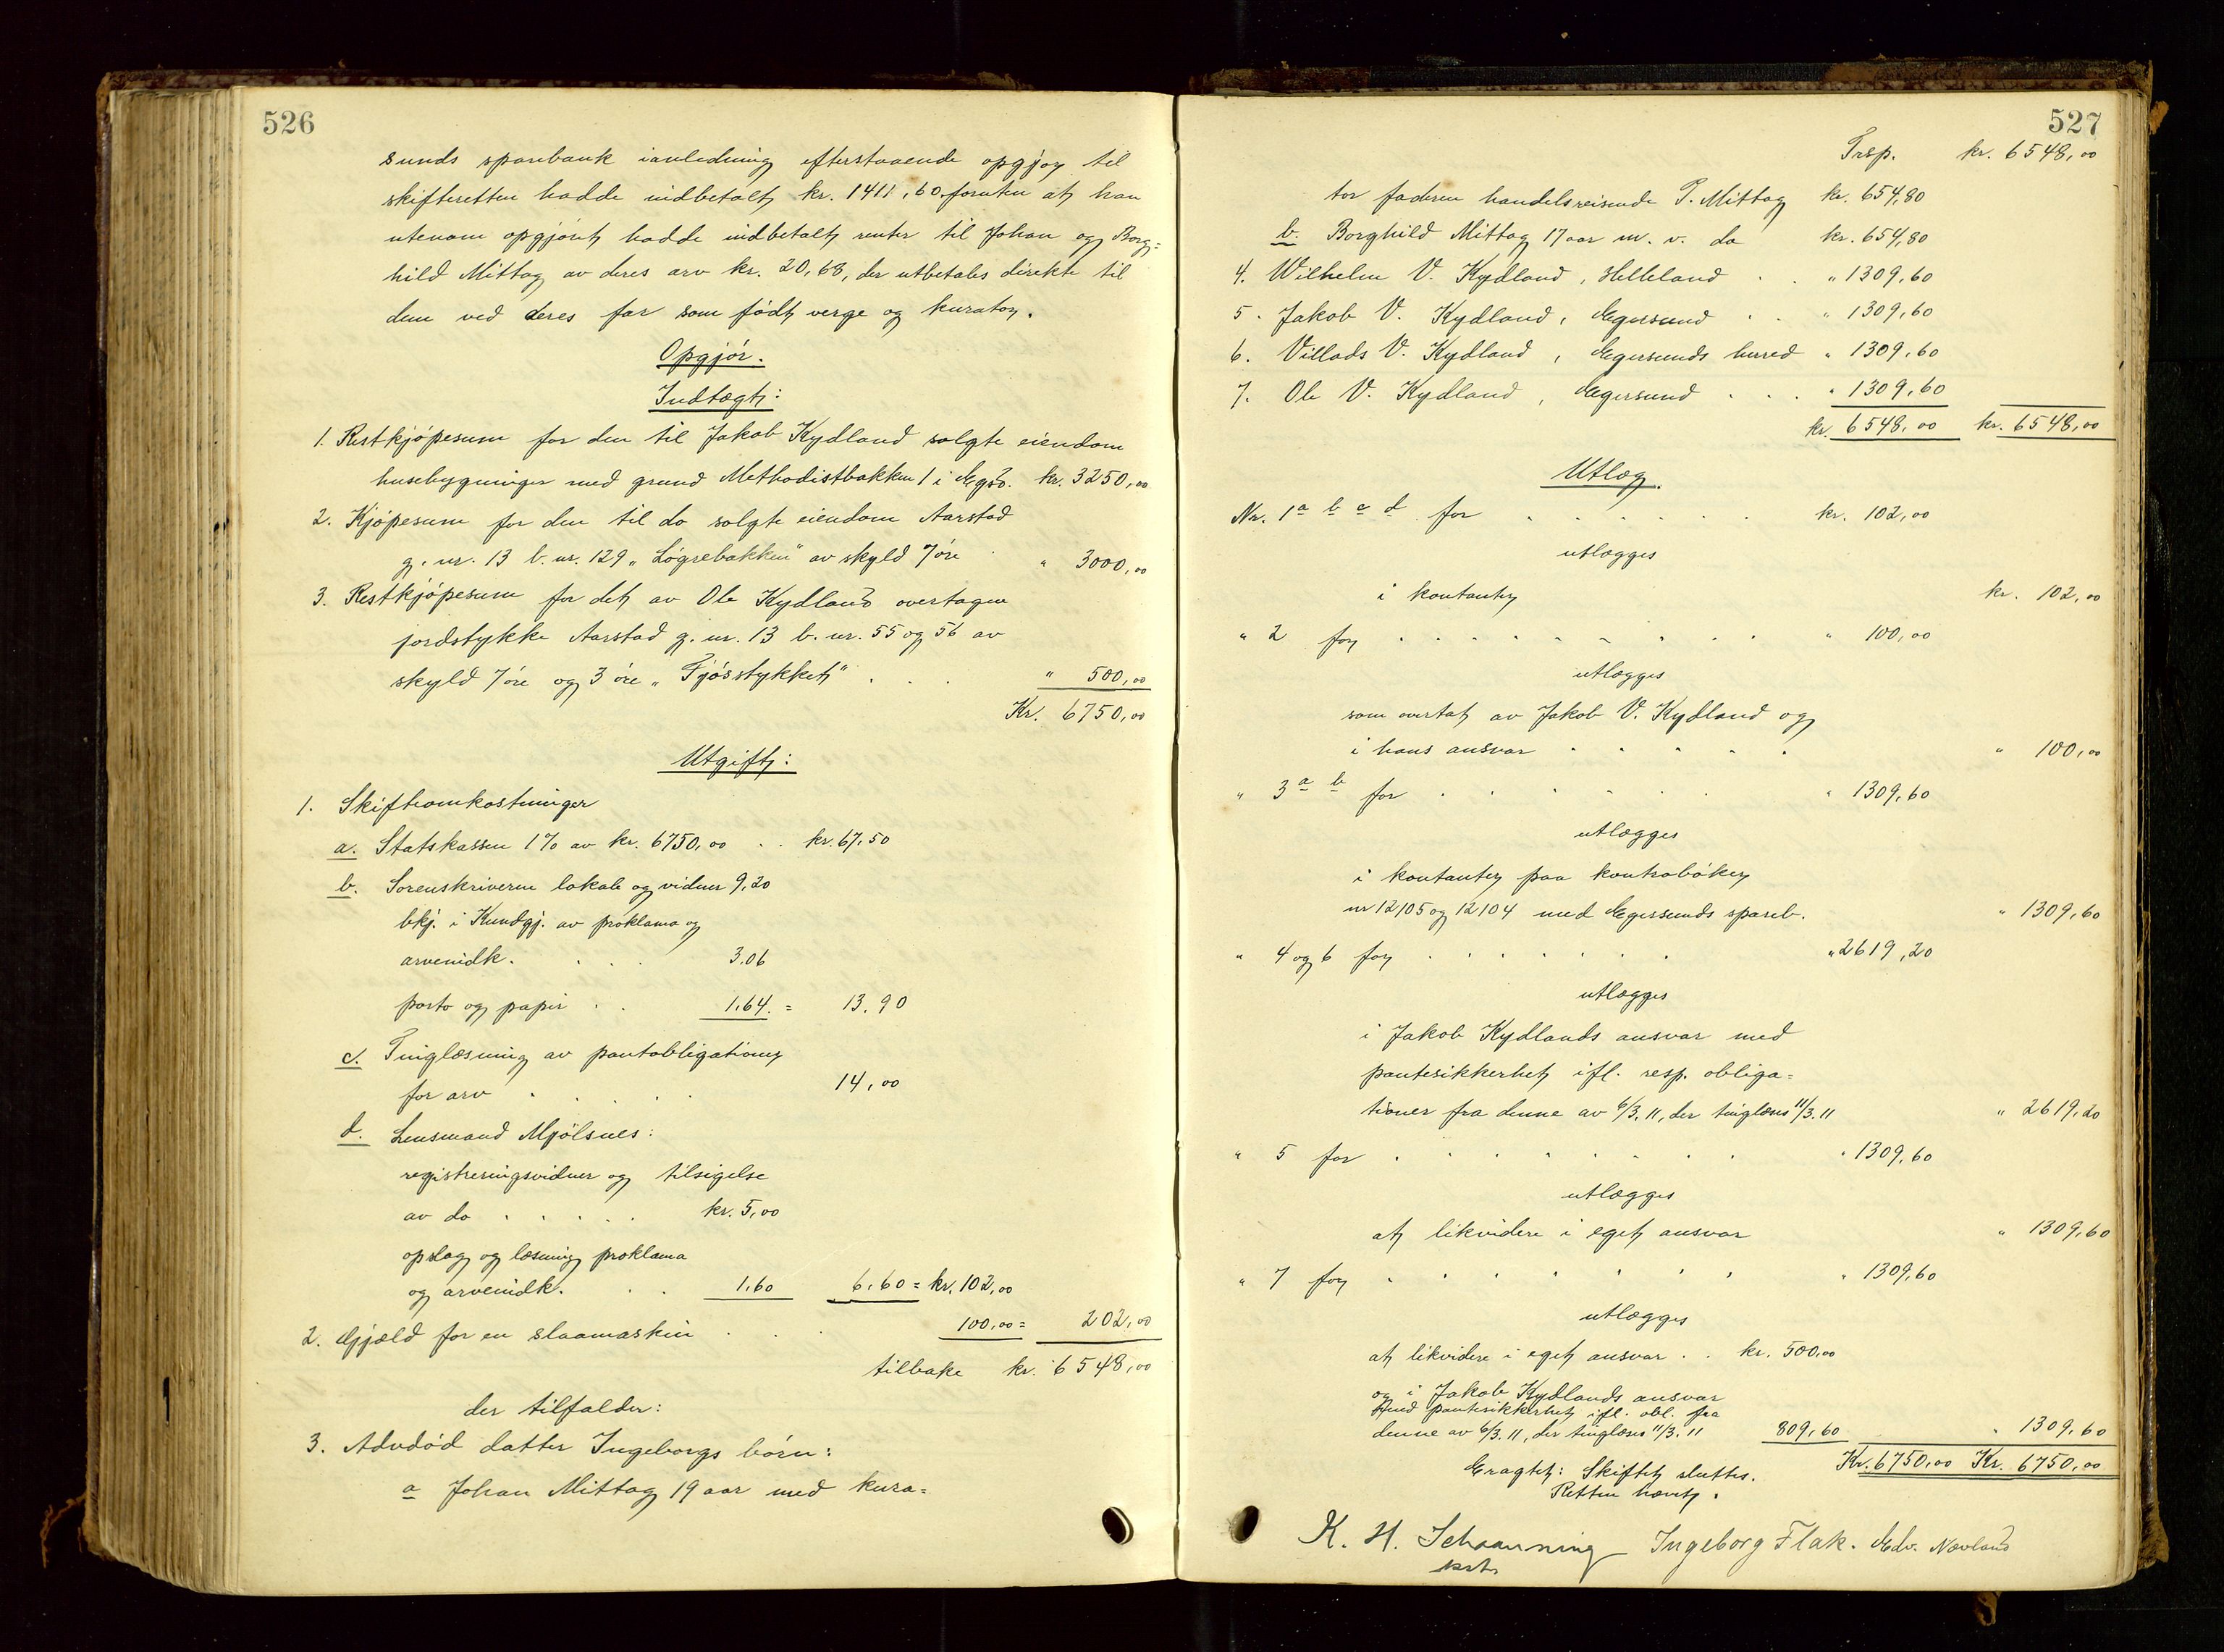 526
sunds sparebank ianledning efterstaaende opgjør til
skifteretten hadde indbetalt kr. 1411,60 foruten at han
utenom opgjøret hadde indbetalt renter til Johan og Borg=
hild Mittag av deres arv kr. 20,68, der utbetales direkte til
dem ved deres far som født verge og kurator.
Opgjør.
Indtægt:
1. Restkjøpesum for den til Jakob Kydland solgte eiendom
husebygninger med grund Methodistbakken 1 i Egsd. kr. 3250,00
2. Kjøpesum for den til do solgte eiendom Aarstad
g. nr. 13 b. nr. 129 „Løgrebakken" av skyld 7 øre " 3000,00
3. Restkjøpesum for det av Ole Kydland overtagne
jordstykke Aarstad g. nr. 13 b. nr. 55 og 56 av
skyld 7 øre og 3 øre „Fjøsstykket" . . . " 500,00
Kr. 6750,00
Utgift:
1. Skifteomkostninger
a. Statskassen 1% av kr. 6750,00 . . kr. 67,50
b. Sorenskriveren lokale og vidner 9,20
bkj. i Kundgj. av proklama og
arveindk. . . . 3.06
porto og papir . . 1,64. = 13,90
c. Tinglæsning av pantobligationer
for arv . . . . . 14,00
d. Lensmand Mjølsnes:
registreringsvidner og tilsigelse
av do . . . . . kr. 5,00
opslag og læsning proklama
og arveindk. . . 1,60 6,60 = kr. 102,00
2. Gjæld for en slaamaskin . . . 100,00 = 202,00
tilbake kr. 6548,00
der tilfalder:
3. Avdød datter Ingeborgs børn:
a Johan Mittag 19 aar med kura=
527
Trsp. kr. 6548,00
tor faderen handelsreisende P. Mittag kr. 654,80
b. Borghild Mittag 17 aar m. v. do kr. 654,80
4. Wilhelm V. Kydland, Helleland . . " 1309,60
5. Jakob V. Kydland, Egersund . . " 1309,60
6. Villads V. Kydland, Egersunds herred " 1309,60
7. Ole V. Kydland, Egersund . . . " 1309,60
kr. 6548,00 kr. 6548,00
Utlæg.
Nr. 1 a b c d for . . . . . . kr. 102,00
utlægges
i kontanter kr. 102,00
" 2 for . . . . . . . . " 100,00
utlægges
som overtat av Jakob V. Kydland og
i hans ansvar . . . . . " 100,00
" 3 a b for . . . . . . " 1309,60
utlægges
i kontanter paa kontrabøker
nr 12105 og 12104 med Egersunds spareb. " 1309,60
" 4 og 6 for . . . . . . . " 2619,20
utlægges
i Jakob Kydlands ansvar med
pantesikkerhet ifl. resp. obliga=
tioner fra denne av 6/3. 11, der tinglæses 11/3. 11 " 2619,20
" 5 for . . . . . . . " 1309,60
utlægges
at likvidere i eget ansvar " 1309,60
" 7 for . . . . . . . " 1309,60
utlægges
at likvidere i eget ansvar . . kr. 500,00
og i Jakob Kydlands ansvar
med pantesikkerhet ifl. obl. fra
denne av 6/3. 11, der tinglæses 11/3. 11 809,60 " 1309,60
Eragtet: Skiftet sluttes. Kr. 6750,00 Kr. 6750,00
Retten hævet.
K. H. Schaanning Ingeborg Flak. Edv. Nævland